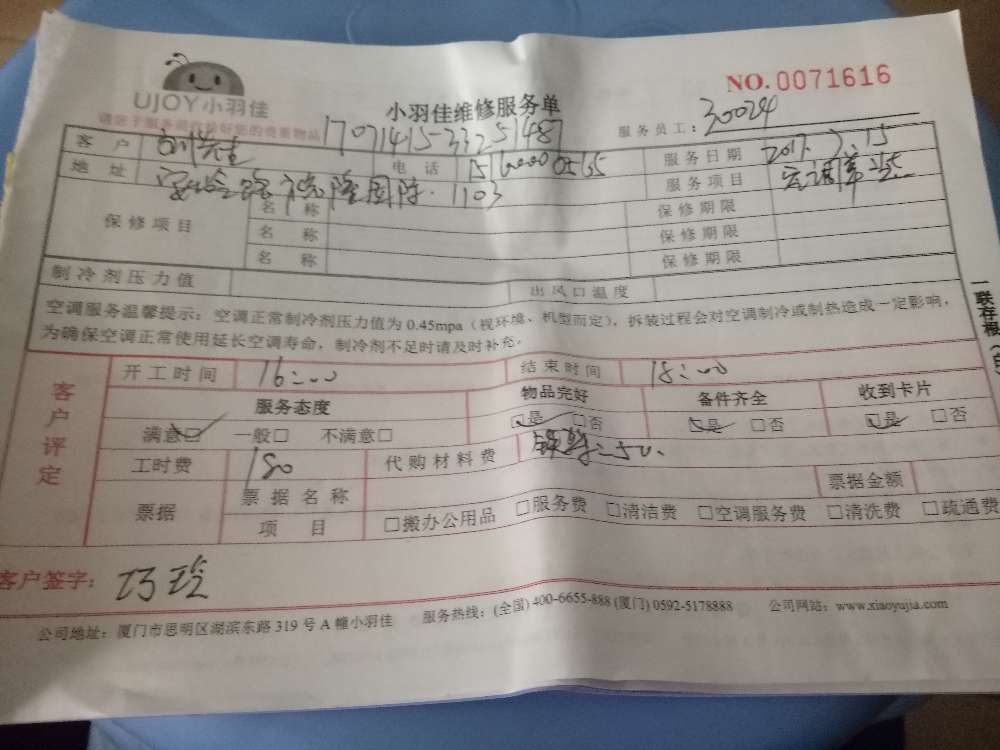 UJOY小羽佳
NO.0071616
请您于服务前收检好您的贵重物品
小羽佳维修服务单
17071415-33251487
服务员工: 30024
客户 刘先生 电话 服务日期 2017.7.15
地址 1103 服务项目 空调
保修项目 名称 保修期限
名称 保修期限
名称 保修期限
制冷剂压力值 出风口温度
空调服务温馨提示: 空调正常制冷剂压力值为0.45mpa(视环境、机型而定), 拆装过程会对空调制冷或制热造成一定影响,
为确保空调正常使用延长空调寿命, 制冷剂不足时请及时补充。
一联存根
客户评定
开工时间 16:00 结束时间 18:00
服务态度 物品完好 备件齐全 收到卡片
满意☑ 一般□ 不满意□ ☑是 □否 ☑是 □否 ☑是 □否
工时费 180 代购材料费 50.
票据 票据名称 票据金额
项目 □搬办公用品 □服务费 □清洁费 □空调服务费 □清洗费 □疏通费
客户签字:
公司地址: 厦门市思明区湖滨东路319号A幢小羽佳 服务热线: (全国) 400-6655-888 (厦门) 0592-5178888 公司网站: www.xiaoyujia.com